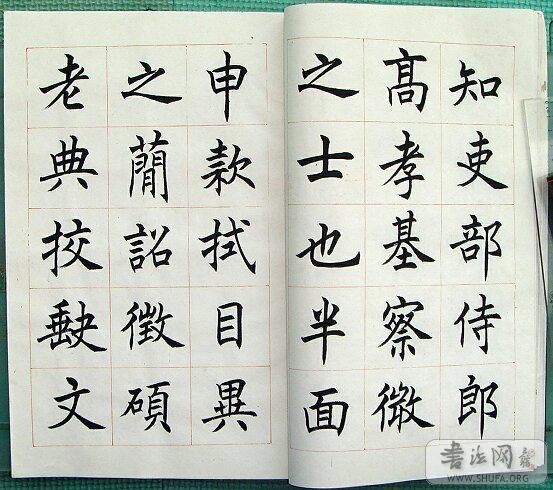 知吏部侍郎
高孝基察微
之士也半面
申款拭目異
之蕳詔徵碩
老典挍缺文
书法网
WWW.SHUFA.ORG